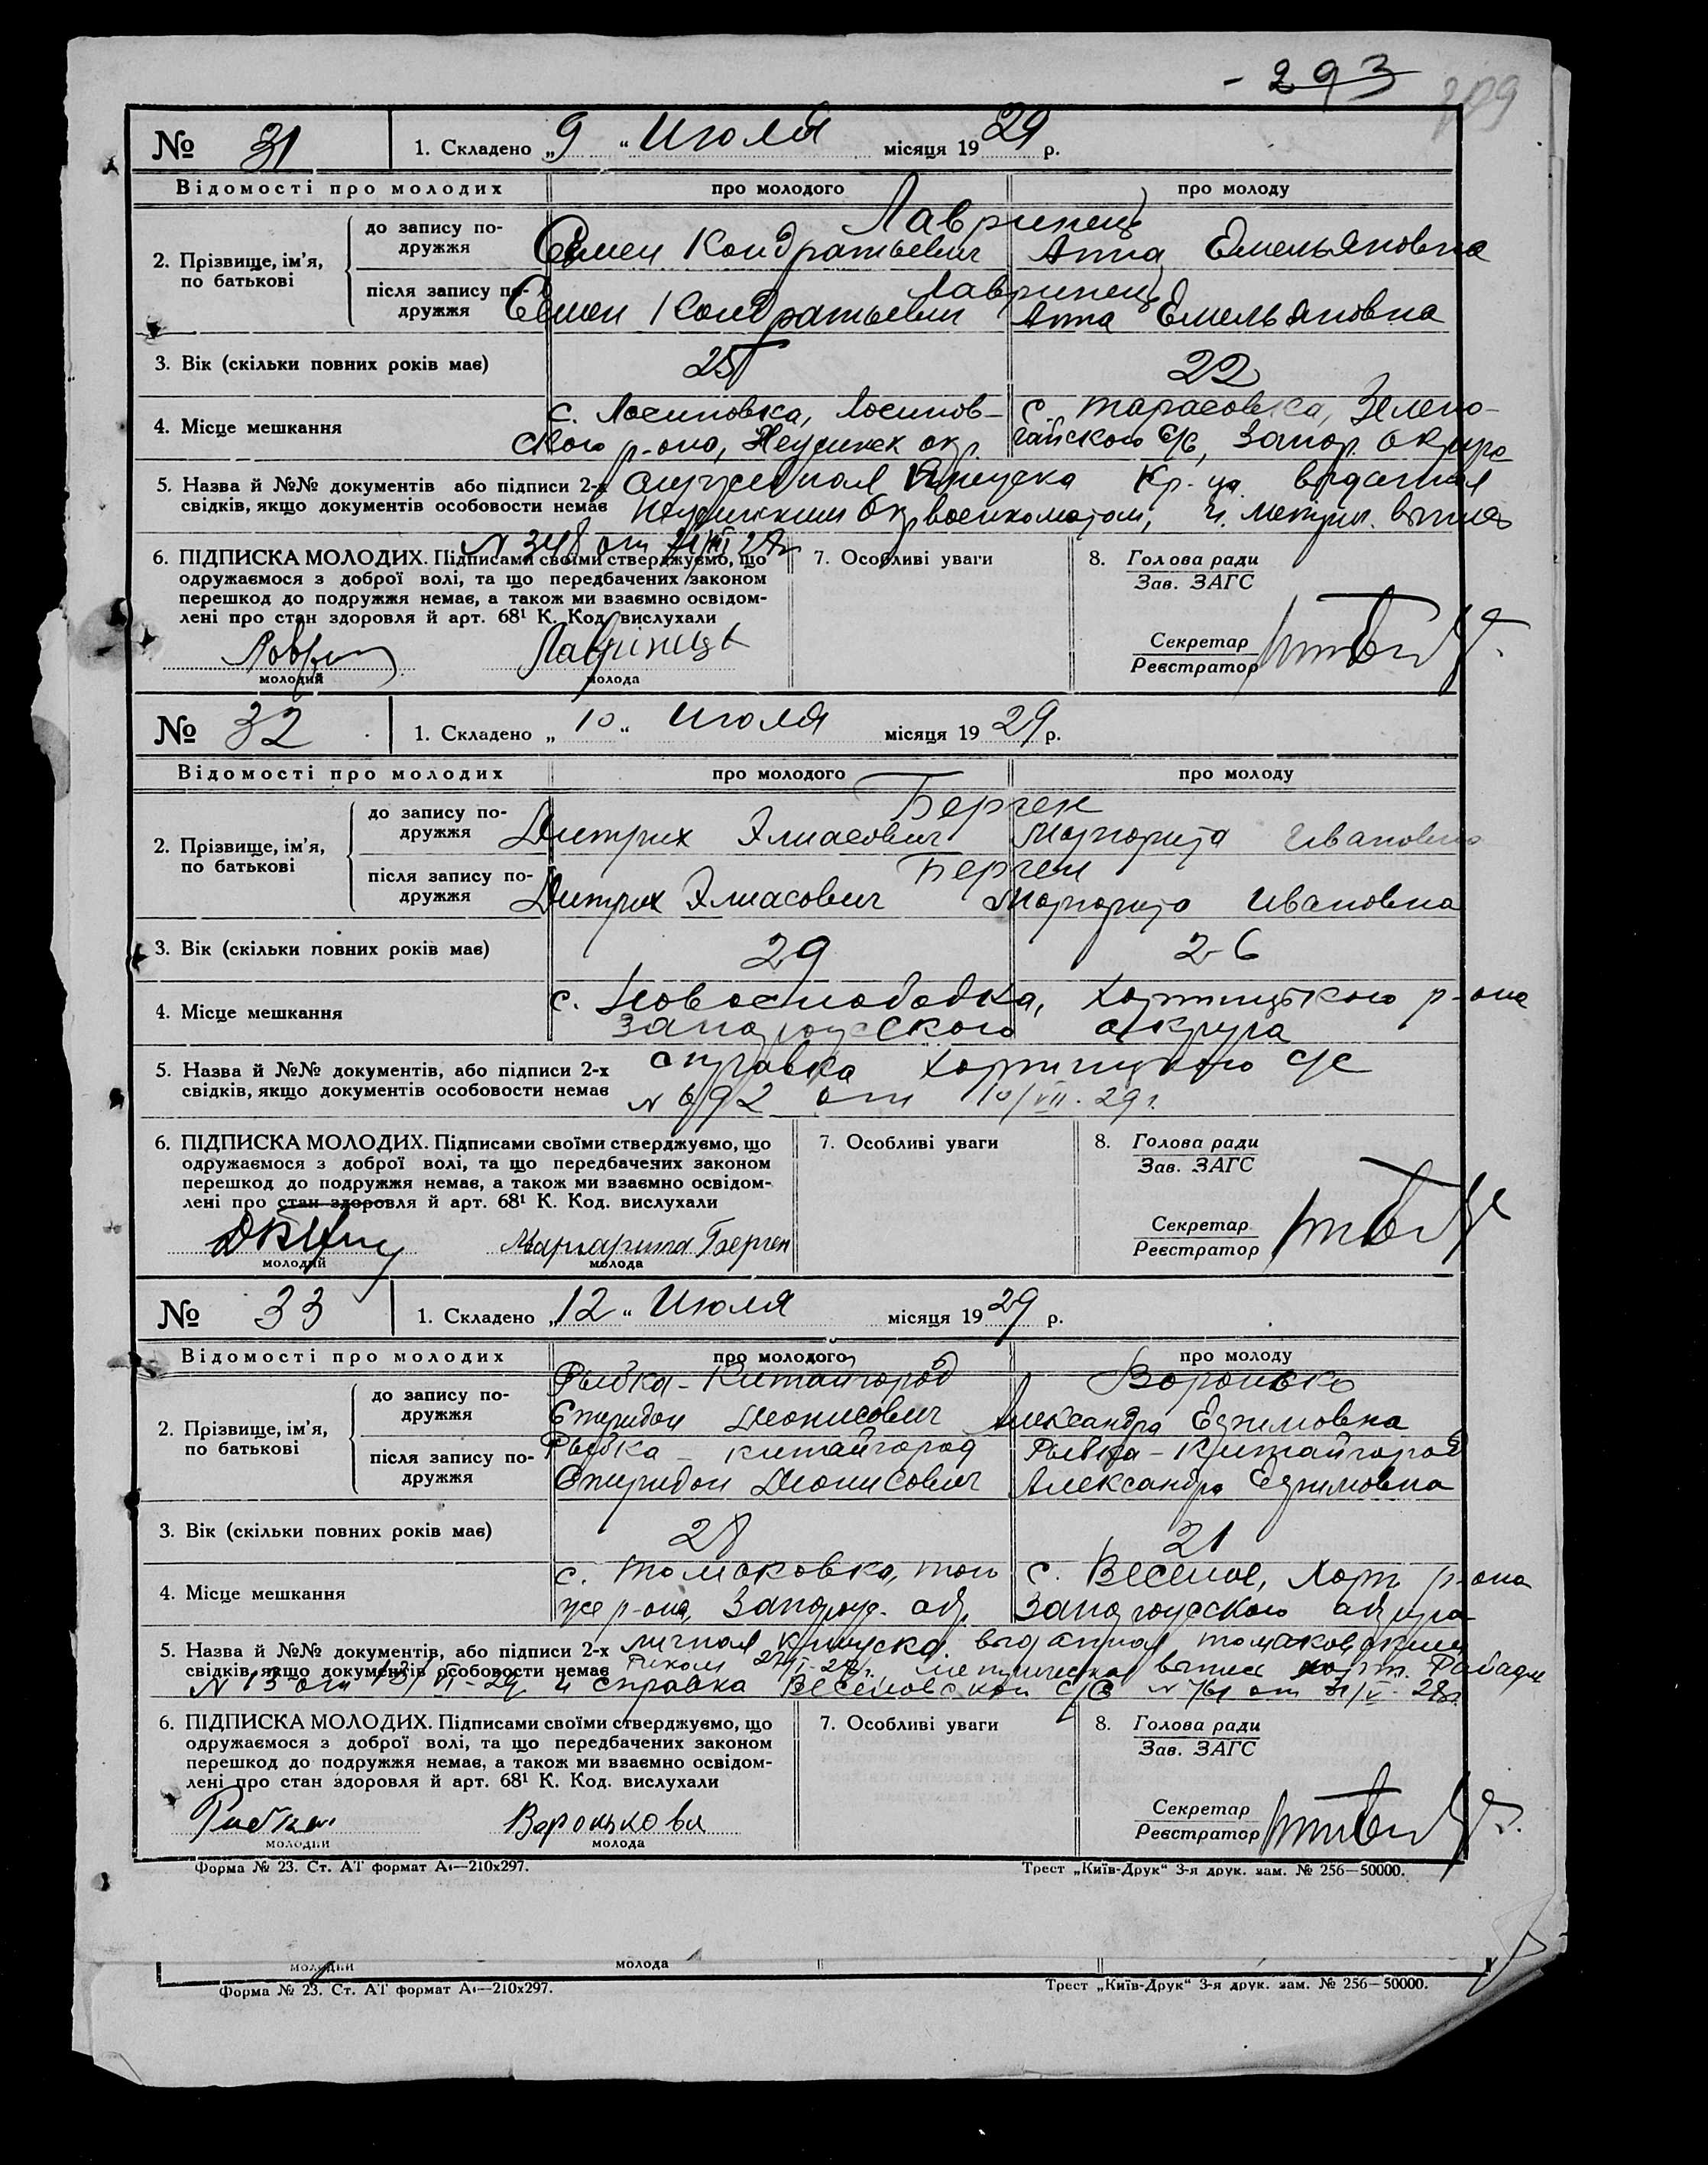 - 293
№ 31 1. Складено „9“ Июля місяця 1929 р.
Відомості про молодих про молодого про молоду
Лавринец
2. Прізвище, ім'я, по батькові
до запису подружжя Семен Кондратьевич Анна Емельяновна
Лавринец
після запису подружжя Семен Кондратьевич Анна Емельяновна
3. Вік (скільки повних років має) 25 22
4. Місце мешкання с. Лосиновка, Лосинов- с. Тарасовка, Зелено-
ского р-она, окр. гайского с/с, Запор. округа
5. Назва й №№ документів або підписи 2-х Кр-ца выданная
свідків, якщо документів особовости немає Окрвоенкоматом, и
N 348 от
6. ПІДПИСКА МОЛОДИХ. Підписами своїми стверджуємо, що 7. Особливі уваги 8. Голова ради
одружаємося з доброї волі, та що передбачених законом Зав. ЗАГС
перешкод до подружжя немає, а також ми взаємно освідом-
лені про стан здоровля й арт. 68¹ К. Код. вислухали
Секретар
Лаврінець Реєстратор
молодий молода
№ 32 1. Складено „10“ Июля місяця 1929 р.
Відомості про молодих про молодого про молоду
Берген
2. Прізвище, ім'я, по батькові
до запису подружжя Дитрих Элиасович Маргарита Ивановна
Берген
після запису подружжя Дитрих Элиасович Маргарита Ивановна
3. Вік (скільки повних років має) 29 26
4. Місце мешкання с. Новослободка, Хортицького р-она
Запорожского округа
5. Назва й №№ документів, або підписи 2-х справка Хортицького с/с
свідків, якщо документів особовости немає N 692 от 10/VII-29 г.
6. ПІДПИСКА МОЛОДИХ. Підписами своїми стверджуємо, що 7. Особливі уваги 8. Голова ради
одружаємося з доброї волі, та що передбачених законом Зав. ЗАГС
перешкод до подружжя немає, а також ми взаємно освідом-
лені про стан здоровля й арт. 68¹ К. Код. вислухали
Секретар
Маргарита Берген Реєстратор
молодий молода
№ 33 1. Складено „12“ Июля місяця 1929 р.
Відомості про молодих про молодого про молоду
Рыбка-Китайгород Воронько
2. Прізвище, ім'я, по батькові
до запису подружжя Спиридон Дионисович Александра Ефимовна
Рыбка - Китайгород Рыбка - Китайгород
після запису подружжя Спиридон Дионисович Александра Ефимовна
3. Вік (скільки повних років має) 28 21
4. Місце мешкання с. Томаковка, того с. Веселое, Хорт. р-она
же р-она, Запорож. окр. Запорожского округа
5. Назва й №№ документів, або підписи 2-х личная книжка выданная Томаковским
свідків, якщо документів особовости немає Риком
N 13 от и справка Веселовской с/с N 761 от
6. ПІДПИСКА МОЛОДИХ. Підписами своїми стверджуємо, що 7. Особливі уваги 8. Голова ради
одружаємося з доброї волі, та що передбачених законом Зав. ЗАГС
перешкод до подружжя немає, а також ми взаємно освідом-
лені про стан здоровля й арт. 68¹ К. Код. вислухали
Секретар
Воронькова Реєстратор
молодий молода
Форма № 23. Ст. АТ формат А₄—210х297. Трест „Київ-Друк“ 3-я друк. зам. № 256—50000.
молодий молода
Форма № 23. Ст. АТ формат А₄—210х297. Трест „Київ-Друк“ 3-я друк. зам. № 256—50000.